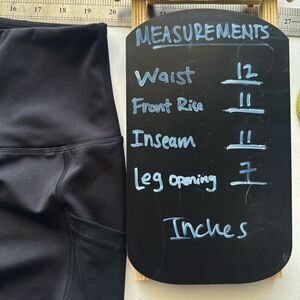 MEASUREMENTS
Waist 12
Front Rise 11
Inseam 11
Leg opening 7
Inches